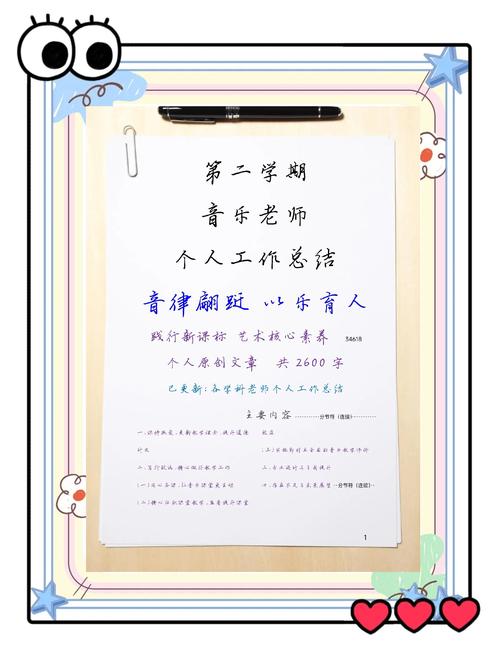 第二学期
音乐老师
个人工作总结
音律翩跹 以乐育人
践行新课标 艺术核心素养 34618
个人原创文章 共2600字
已更新:各学科老师个人工作总结
主要内容 分节符(连续)
一、保持热爱,更新教学理念,提升道德
二、言行致远,精心做好教学工作
(一)用心备课,让音乐课堂更生动
(二)精心组织课堂教学,
(三)实施即时且全面的音乐教学评价
三、专业进修与自我提升
四、存在不足与未来展望 分节符(连续)
1